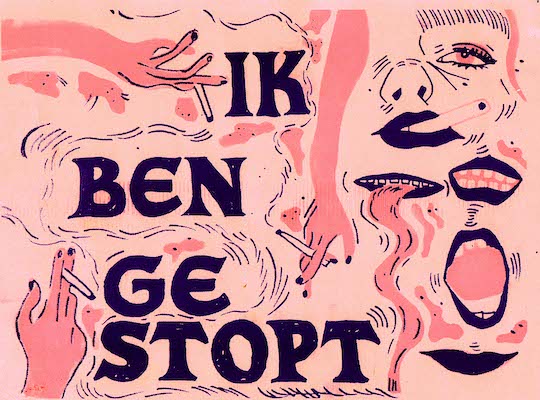 IK
BEN
GE
STOPT